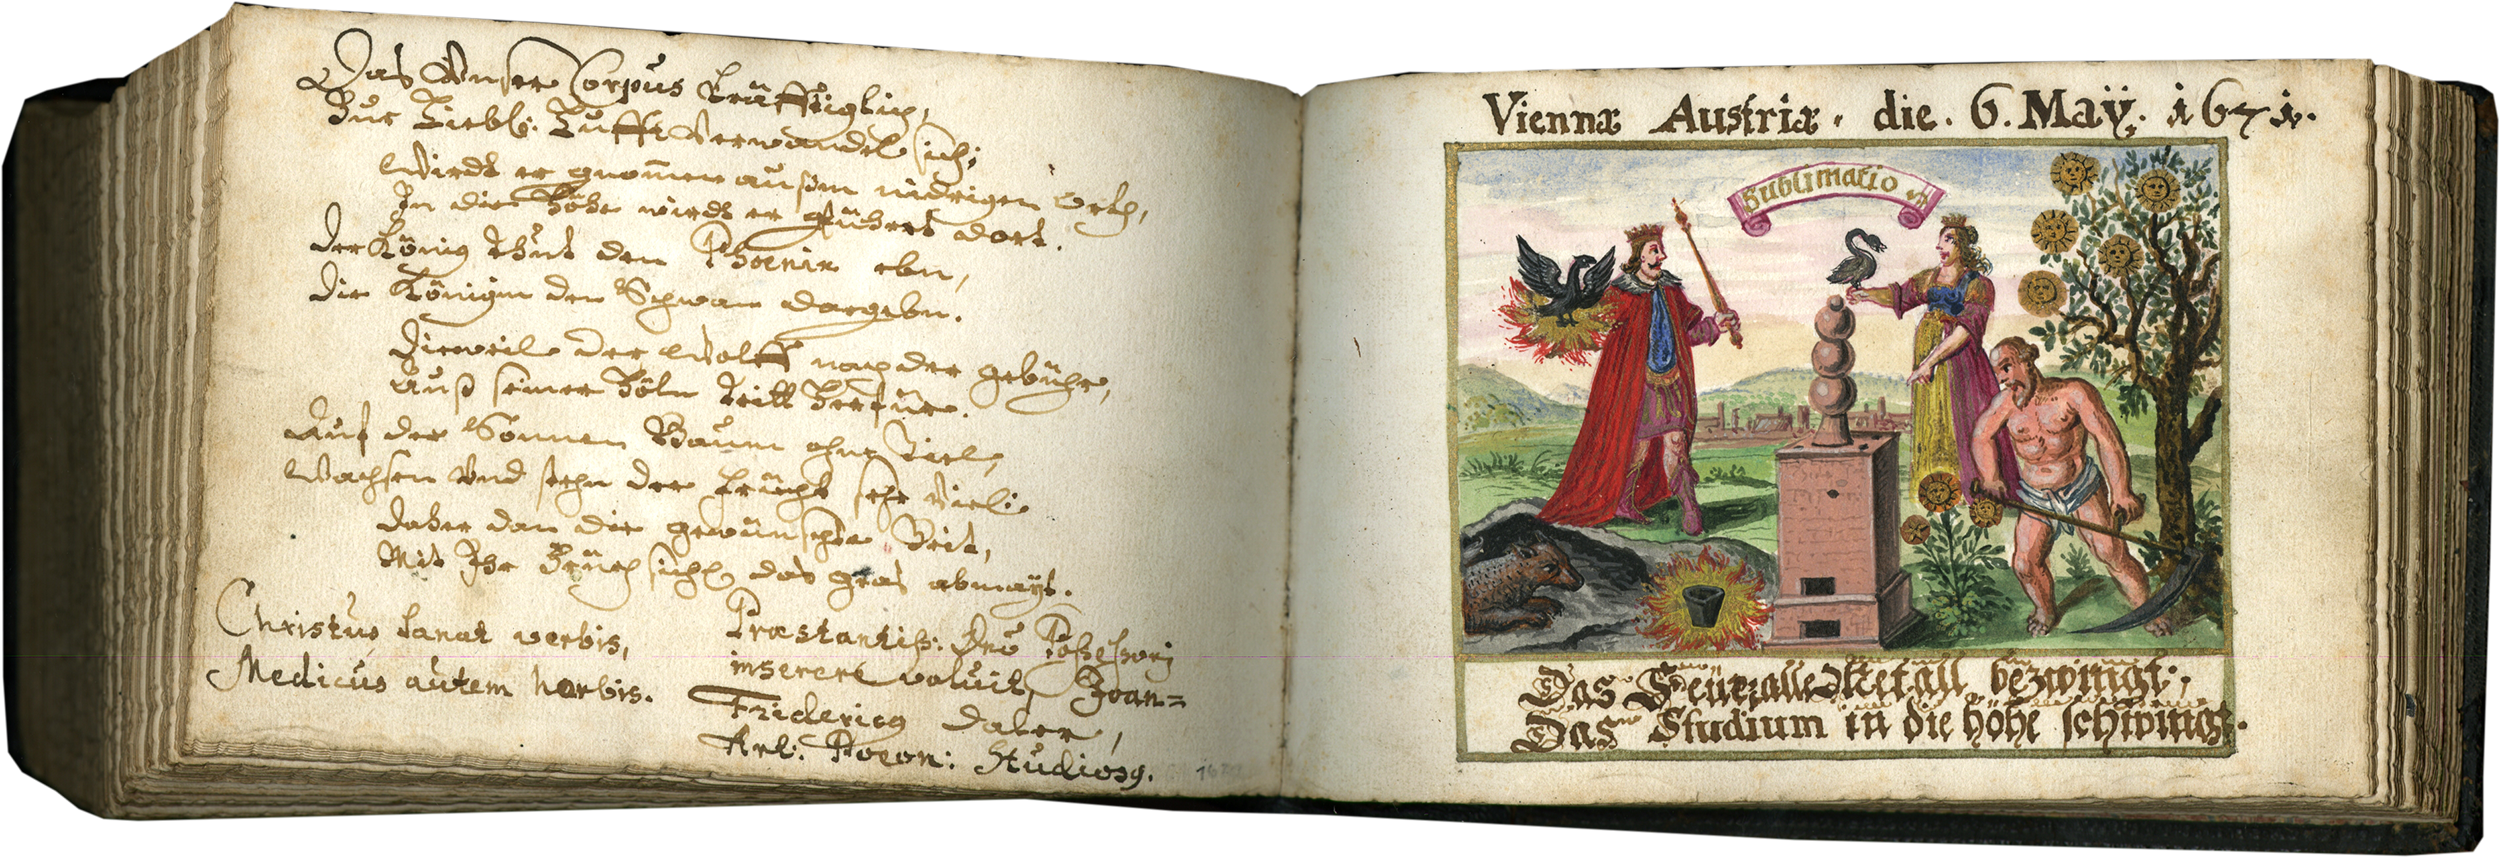 Das Unser Corpus kräfftiglich,
Zur Liebl: Lufft verwandel sich;
Wirdt er gnom̄en außm nidrigen Orth,
In die Höhe wirdt er gführet dort.
Der König thut den Phoenix ebn,
Die Königin den Schwan dargebn.
Dieweil der Wolff nach der gebühr,
Auß seiner Höln tritt herfür.
Auf der Sonnen Baum ohne Ziel,
Wachsen Und stehn der Frücht sehr viel:
Daher dan die gewünschte Zeit,
Mit Ihr sichl das gras abmayt.
Christus sanat verbis,
Medicus autem herbis.
Præstantiß: Dnō Poßeßori
inserere voluit, Joan=
Fridericq
Art: Studiosq.
Viennæ Austriæ. die. 6. Maÿ. 1671.
Sublimatio
Das Feür alle Metall bezwingt;
Das Studium in die höhe schwingt.